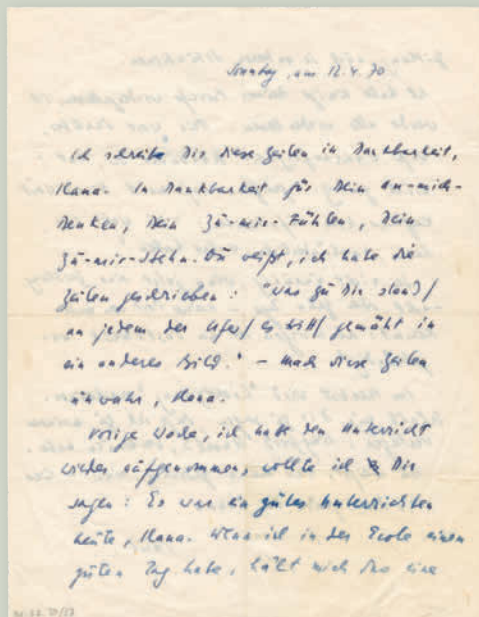 Sonntag, am 12.4.70
Ich schreibe Dir diese Zeilen in Dankbarkeit,
Ilana. In Dankbarkeit für Dein An-mich-
Denken, Dein Zu-mir-Fühlen, Dein
Zu-mir-Stehn. Du weißt, ich habe die
Zeilen geschrieben: "was zu Dir stand/
an jedem der Ufer/ es tritt/ gemäht in
ein anderes Bild." – mach diese Zeilen
unwahr, Ilana.
Vorige Woche, ich habe den Unterricht
wieder aufgenommen, wollte ich Dir
sagen: Es war ein gutes Unterrichten
heute, Ilana. Wenn ich in der Ecole einen
guten Tag habe, hält mich das eine